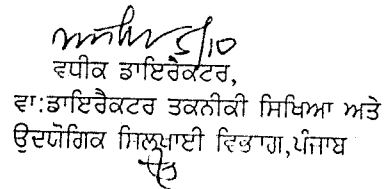 5/10
ਵਧੀਕ ਡਾਇਰੈਕਟਰ,
ਵਾ:ਡਾਇਰੈਕਟਰ ਤਕਨੀਕੀ ਸਿਖਿਆ ਅਤੇ
ਉਦਯੋਗਿਕ ਸਿਲਖਾਈ ਵਿਭਾਗ,ਪੰਜਾਬ